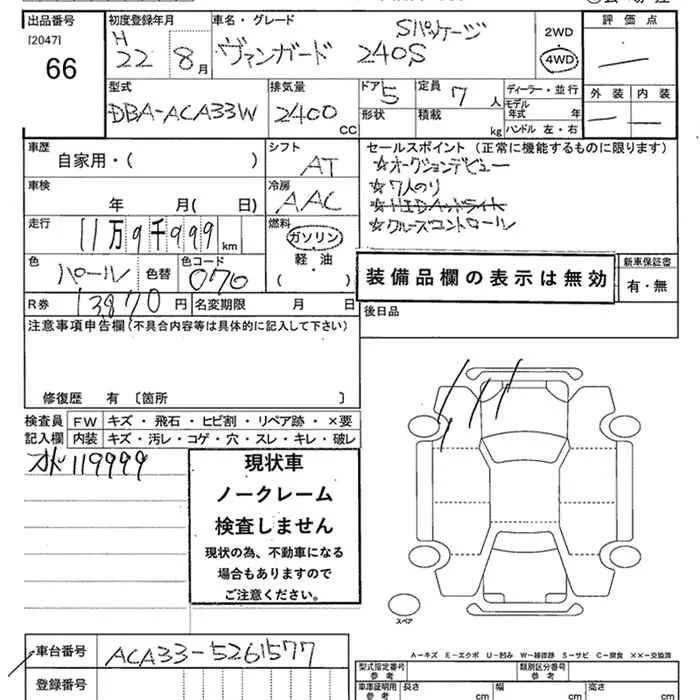 出品番号 初度登録年月 車名・グレード Sパッケージ 2WD 評価点
[2047] H
66 22 8月 ヴァンガード 240S 4WD
型式 排気量 ドア 定員 ディーラー・並行 外装 内装
DBA-ACA33W 2400 CC 5 7人 モデル年式 年
形状 積載 kg ハンドル 左・右
車歴 シフト セールスポイント (正常に機能するものに限ります)
自家用・( ) AT ☆オークションデビュー
車検 冷房 ☆7人のり
年 月( 日) AAC
走行 11万9千999km 燃料 ☆クルーズコントロール
ガソリン
軽・油
( )
色 パール 色替 色コード 070
装備品欄の表示は無効
新車保証書
有・無
R券 13870円 名変期限 月 日 後日品
注意事項申告欄(不具合内容等は具体的に記入して下さい)
修復歴 有 〔箇所 〕
検査員 FW キズ・飛石・ヒビ割・リペア跡・×要
記入欄 内装 キズ・汚レ・コゲ・穴・スレ・キレ・破レ
オド119999
現状車
ノークレーム
検査しません
現状の為、不動車になる
場合もありますので
ご注意ください。
スペア
A-キズ E-エクボ U-凹み W-補修跡 S-サビ C-腐食 ××-交換済
車台番号 ACA33-5261577
登録番号
型式指定番号 参考 類別区分番号 参考
車庫証明用 参考 長さ cm 幅 cm 高さ cm